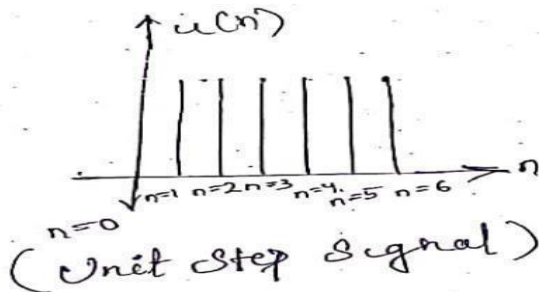 u(n)
n
n=1 n=2 n=3 n=4. n=5 n=6
n=0
(Unit Step Signal)